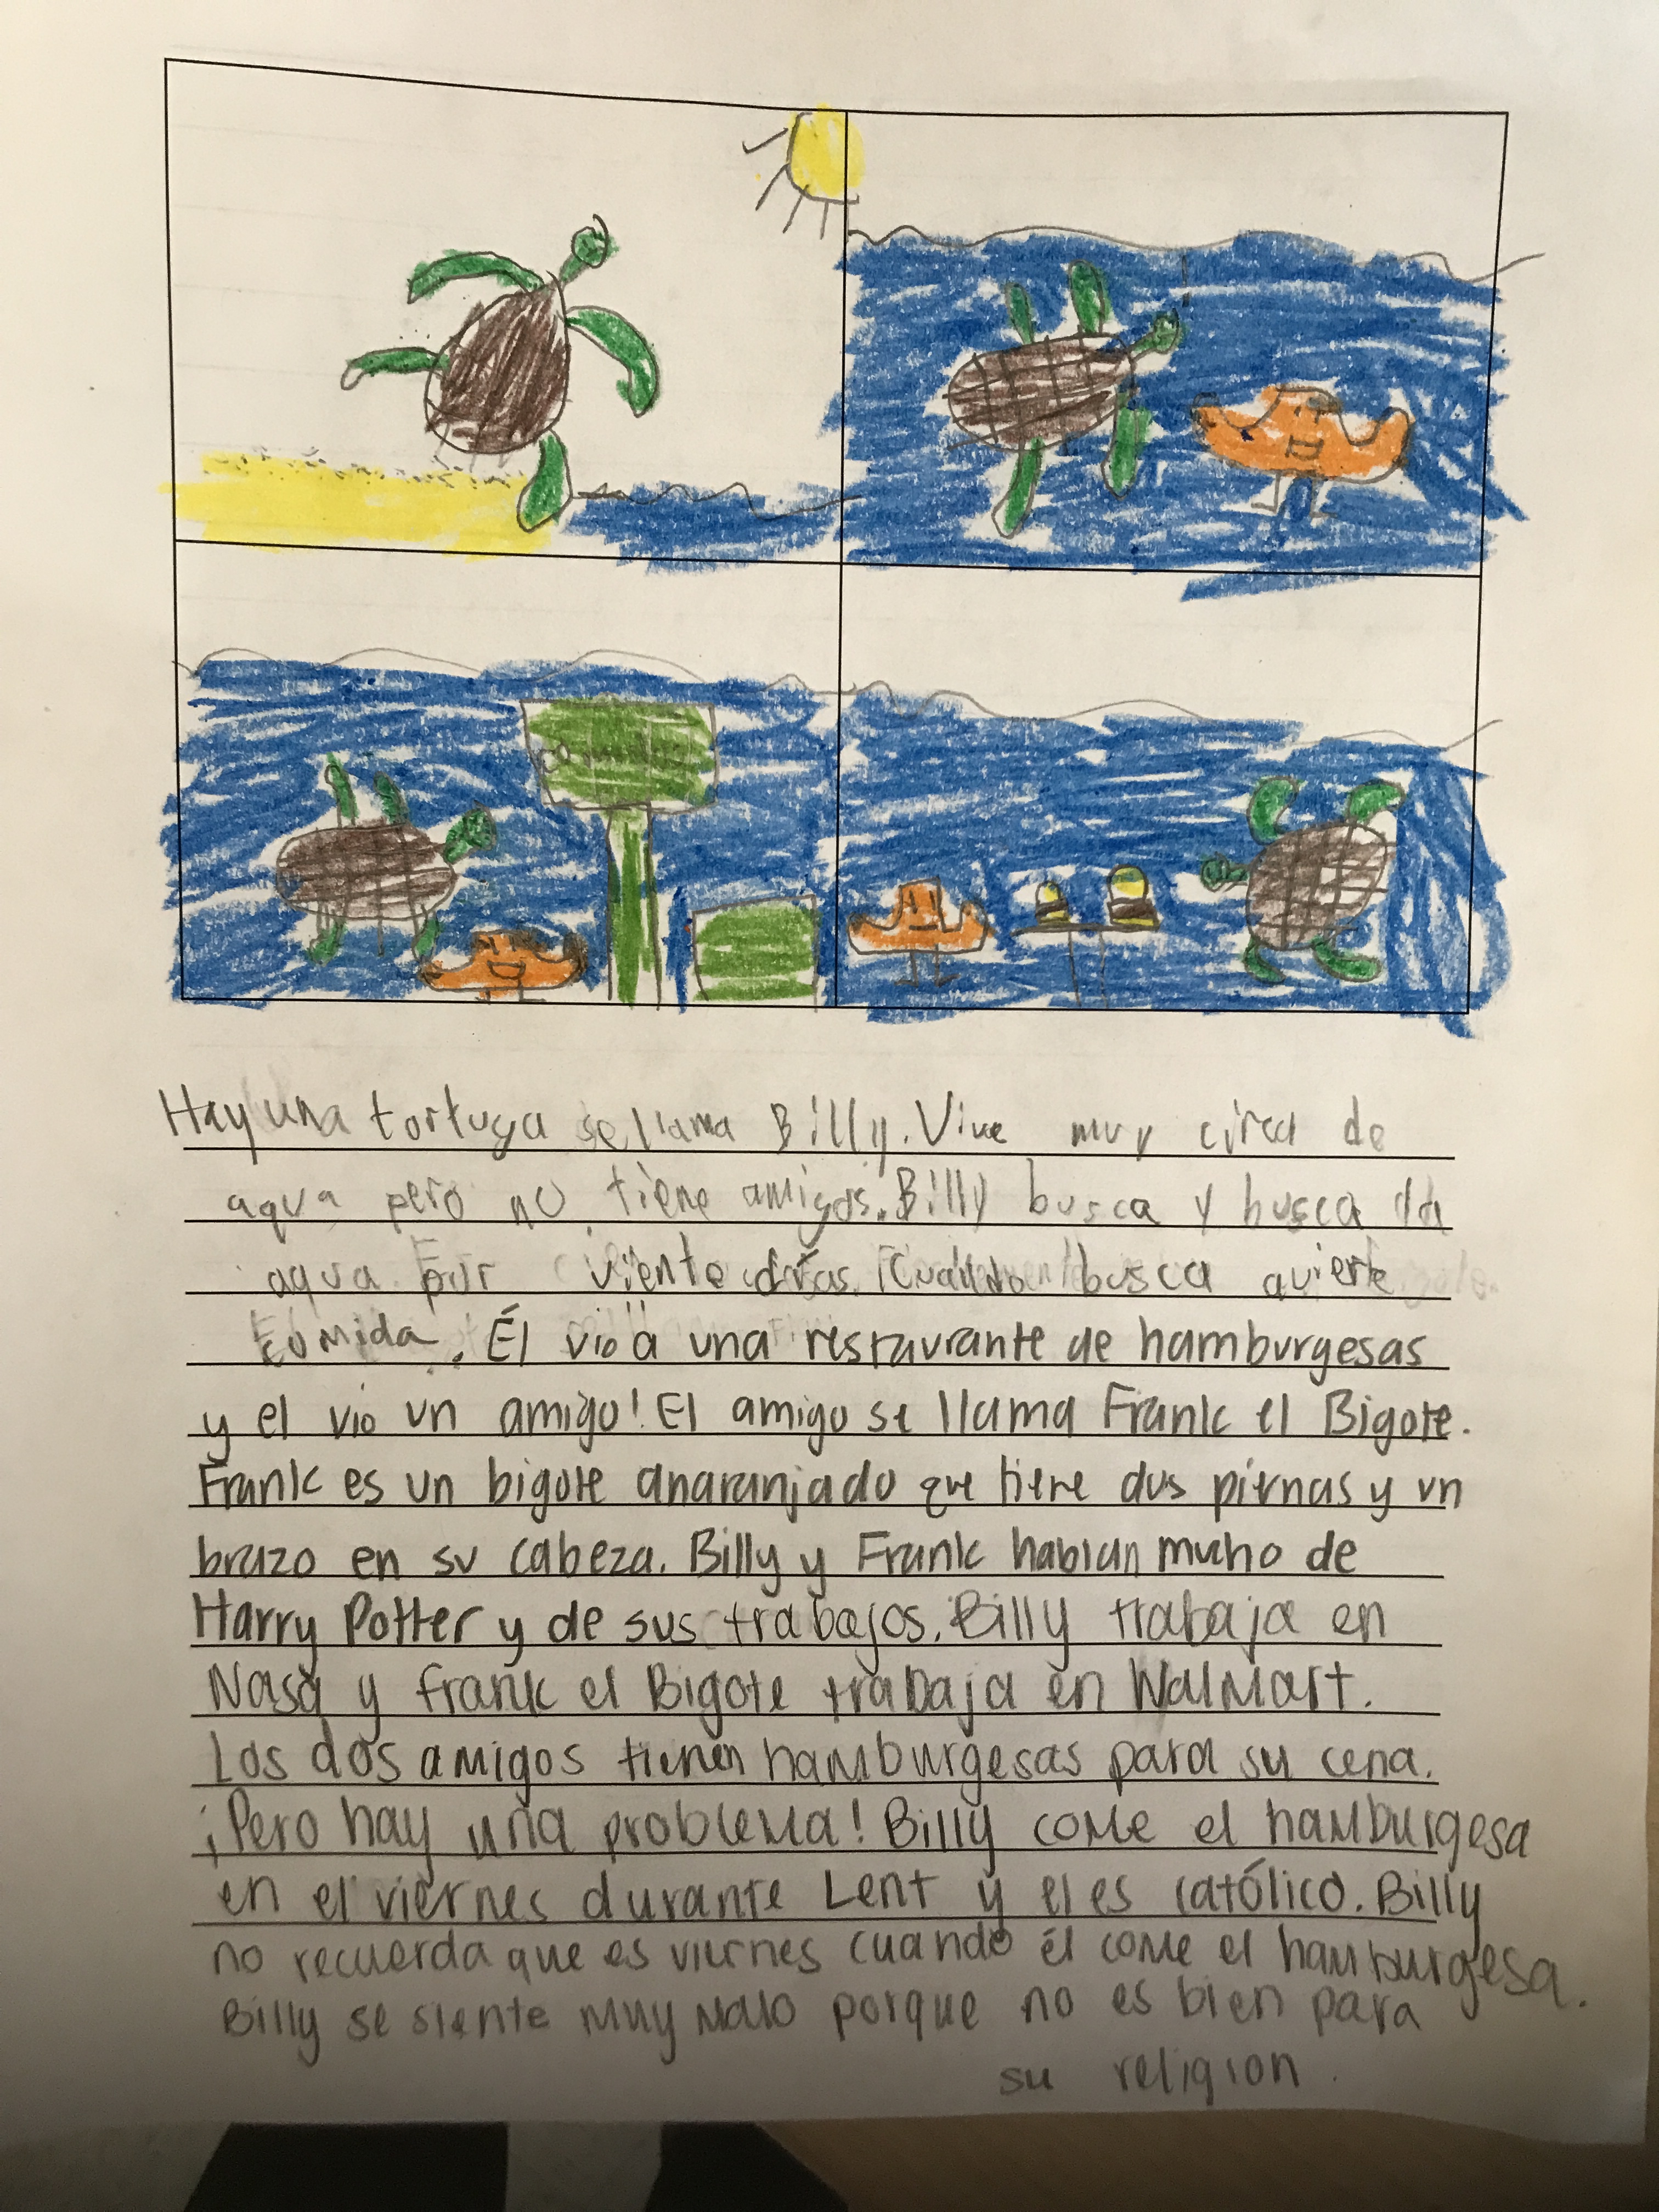 Hay una tortuga se llama Billy. Vive muy circa de
aqua pero no tiene amigos. Billy busca y busca da
aqua por viente días. Cuando busca quiere
comida. Él vio a una restaurante de hamburgesas
y el vio un amigo! El amigo se llama Frank el Bigote.
Frank es un bigote anaranjado que tiene dos piernas y un
brazo en su cabeza. Billy y Frank hablan mucho de
Harry Potter y de sus trabajos. Billy trabaja en
Nasa y Frank el Bigote trabaja en Walmart.
Los dos amigos tienen hamburgesas para su cena.
¡Pero hay una problema! Billy come el hamburgesa
en el viernes durante Lent y el es católico. Billy
no recuerda que es viernes cuando él come el hamburgesa.
Billy se siente muy malo porque no es bien para
su religion.